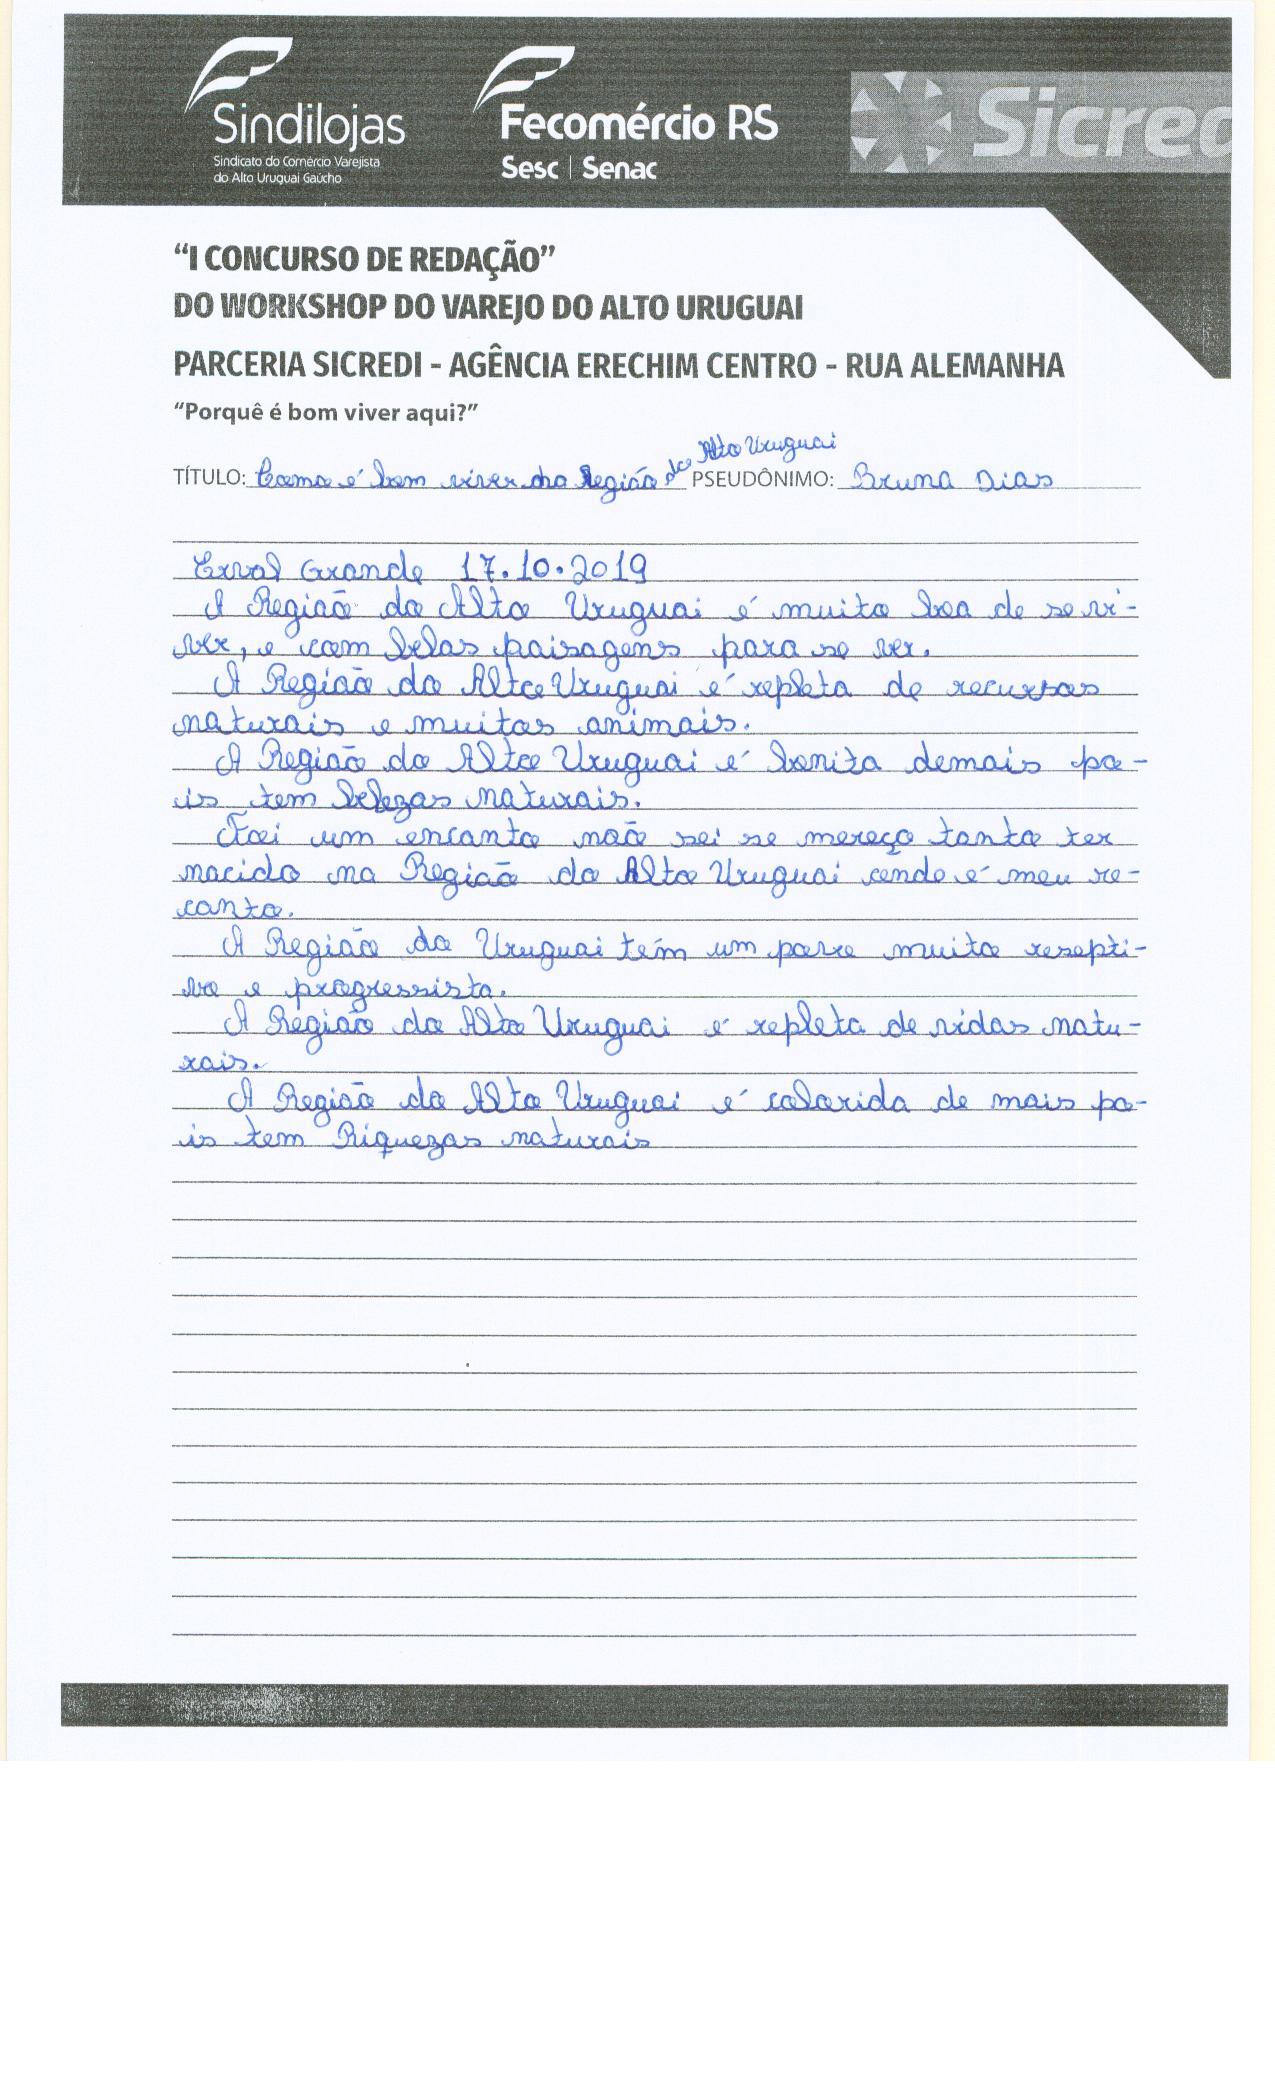 Sindilojas
Sindicato do Comércio Varejista
do Alto Uruguai Gaúcho
Fecomércio RS
Sesc | Senac
Sicred
“I CONCURSO DE REDAÇÃO”
DO WORKSHOP DO VAREJO DO ALTO URUGUAI
PARCERIA SICREDI - AGÊNCIA ERECHIM CENTRO - RUA ALEMANHA
“Porquê é bom viver aqui?”
TÍTULO: Como é bom viver na Região do Alto Uruguai PSEUDÔNIMO: Bruna Dias
Erval Grande 17.10.2019
A Região do Alto Uruguai é muito boa de se vi-
ver, e com belas paisagens para se ver.
A Região do Alto Uruguai é repleta de recursos
naturais e muitos animais.
A Região do Alto Uruguai é bonita demais po-
is tem belezas naturais.
Foi um encanto não sei se mereço tanto ter
nacido na Região do Alto Uruguai onde é meu re-
canto.
A Região do Uruguai tem um povo muito resepti-
vo e progressista.
A Região do Alto Uruguai é repleta de vidas natu-
rais.
A Região do Alto Uruguai é colorida de mais po-
is tem Riquezas naturais